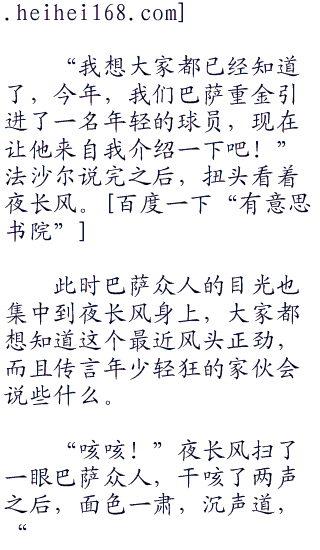 .heihei168.com]
“我想大家都已经知道
了，今年，我们巴萨重金引
进了一名年轻的球员，现在
让他来自我介绍一下吧！”
法沙尔说完之后，扭头看着
夜长风。[百度一下“有意思
书院”]
此时巴萨众人的目光也
集中到夜长风身上，大家都
想知道这个最近风头正劲，
而且传言年少轻狂的家伙会
说些什么。
“咳咳！”夜长风扫了
一眼巴萨众人，干咳了两声
之后，面色一肃，沉声道，
“